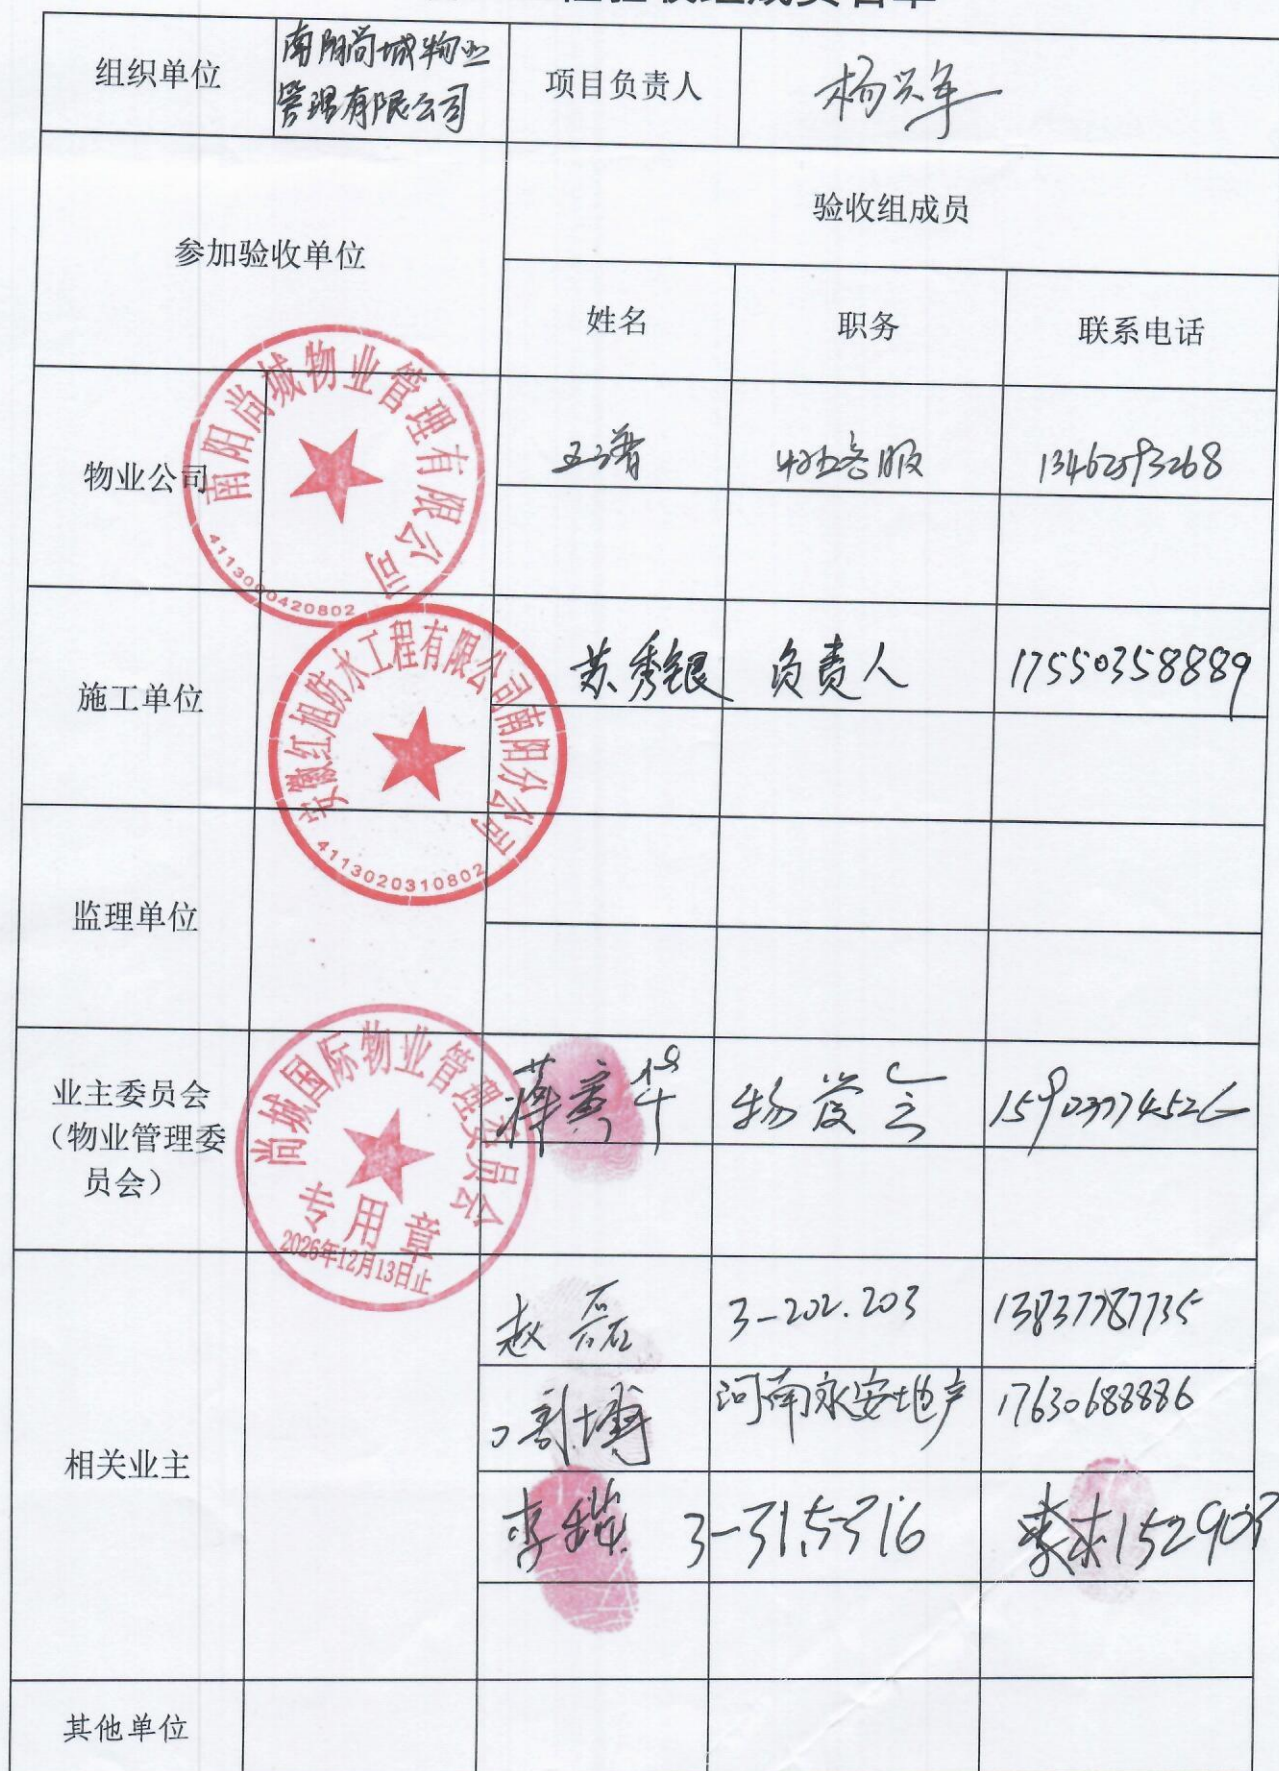 验收组成员名单
组织单位
南阳尚城物业
管理有限公司
项目负责人
杨兴军
参加验收单位
验收组成员
姓名
职务
联系电话
物业公司
南阳尚城物业管理有限公司
4113000420802
物业客服
13462593268
施工单位
安徽红旭防水工程有限公司南阳分公司
4113020310802
苏秀银
负责人
17550358889
监理单位
业主委员会
（物业管理委
员会）
尚城国际物业管理委员会
专用章
2026年12月13日止
物管会
15903774526
相关业主
赵磊
3-202.203
13837787735
河南永安地产
17630688886
李
3-315-316
152903
其他单位